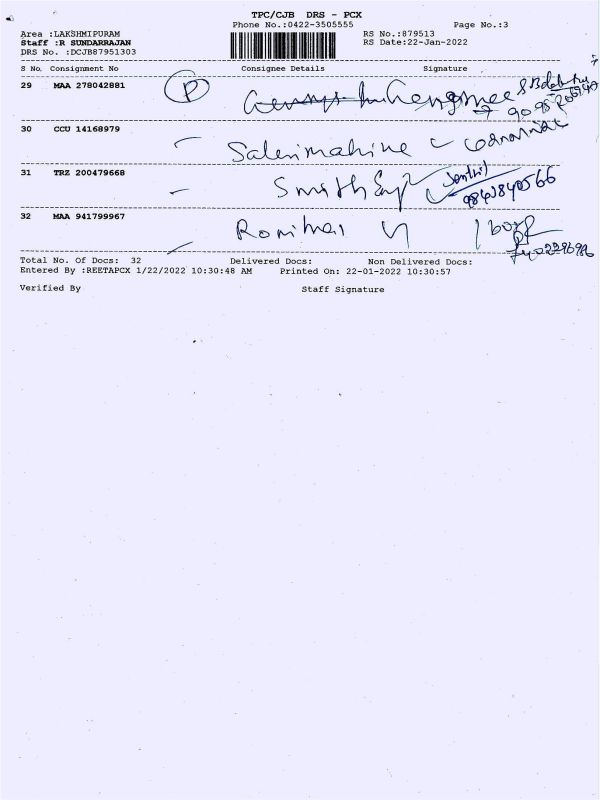 TPC/CJB DRS - PCX
Phone No.:0422-3505555 Page No.:3
Area :LAKSHMIPURAM RS No.:879513
Staff :R SUNDARRAJAN RS Date:22-Jan-2022
DRS No. :DCJB87951303
S No. Consignment No Consignee Details Signature
29 MAA 278042881 P
30 CCU 14168979
31 TRZ 200479668 Smith
9843840566
32 MAA 941799967
Total No. Of Docs: 32 Delivered Docs: Non Delivered Docs:
Entered By :REETAPCX 1/22/2022 10:30:48 AM Printed On: 22-01-2022 10:30:57
Verified By Staff Signature